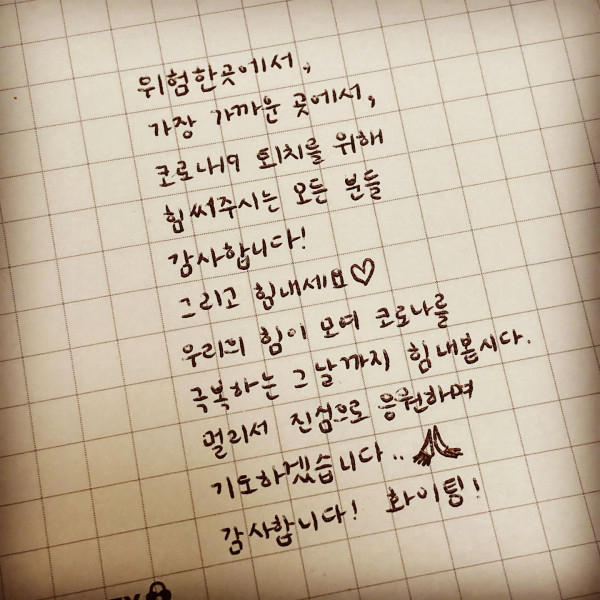 위험한곳에서,
가장 가까운 곳에서,
코로나19 퇴치를 위해
힘써주시는 모든 분들
감사합니다!
그리고 힘내세요♡
우리의 힘이 모여 코로나를
극복하는 그날까지 힘내봅시다.
멀리서 진심으로 응원하며
기도하겠습니다..
감사합니다! 화이팅!